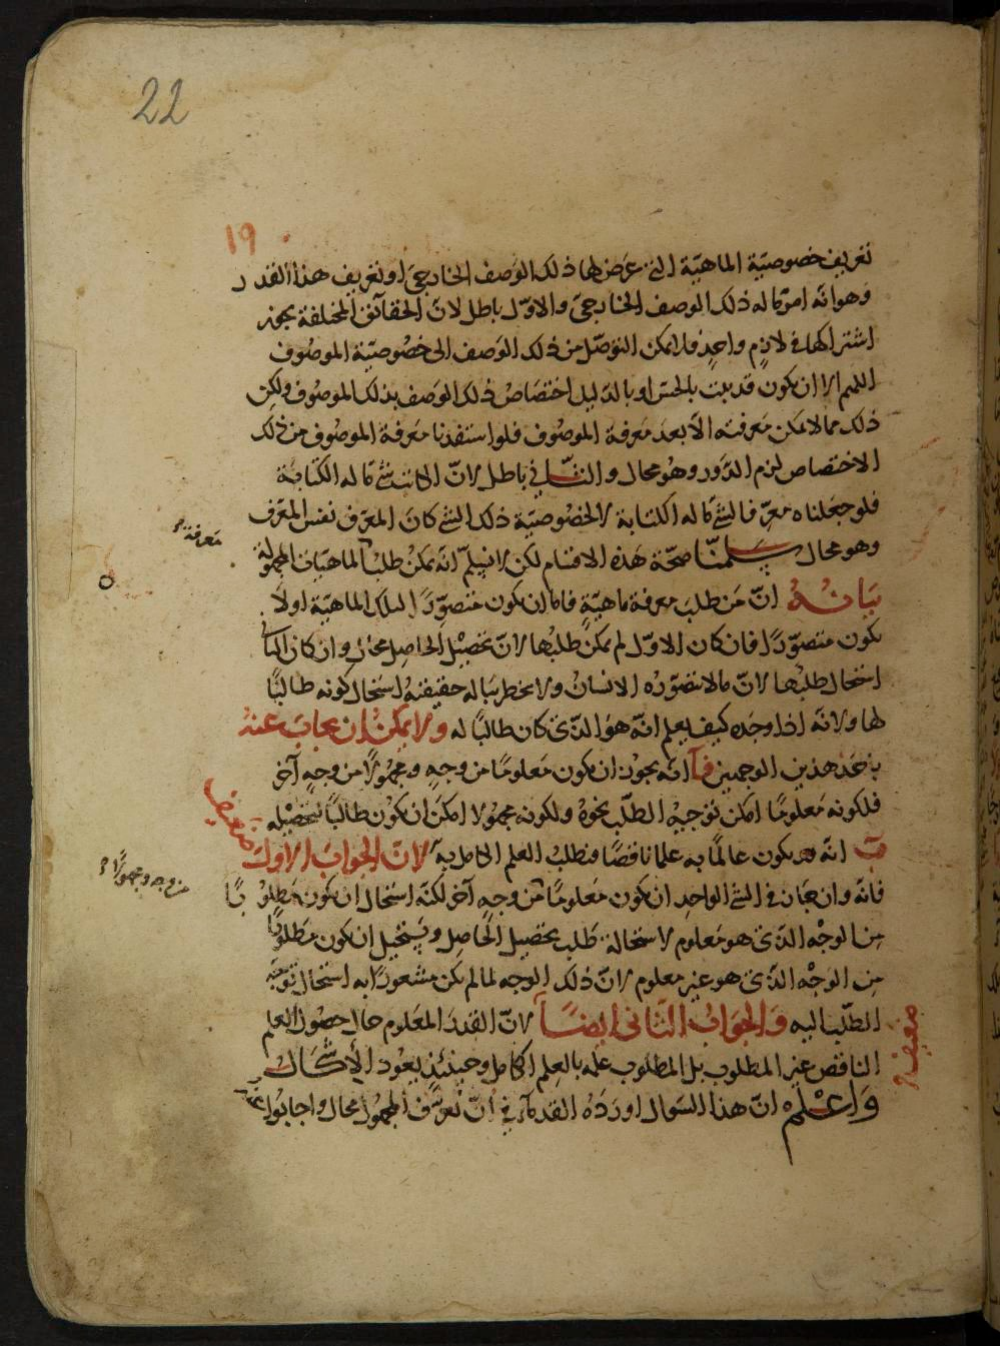 22
١٩
تعريف خصوصيّة الماهيّة التي عرَض لها ذلك الوصف الخارجيّ او تعريف هذا القدر
وهو انّه امر ما له ذلك الوصف الخارجيّ والاوّل باطل لانّ الحقائق المختلفة يجوز
اشتراكها في لازم واحد فلا يمكن التوصّل من ذلك الوصف الى خصوصيّة الموصوف
اللهم الا ان يكون قد ثبت بالحسّ او بالدّليل اختصاص ذلك الوصف بذلك الموصوف ولكن
ذلك مما لا يمكن معرفته الّا بعد معرفة الموصوف فلو استفدنا معرفة الموصوف من ذلك
الاختصاص لزم الدّور وهو محال والثّاني باطل لانّ الكاتب شئ ما له الكتابة
فلو جعلناه معرّفا لشئ ما له الكتابة لا لخصوصيّة ذلك الشئ كان المعرِّف نفس المعرَّف
وهو محال سلّمنا صحّة هذه الاقسام لكن لا نسلّم انّه يمكن طلب الماهيّات المجهولة
معرفة
بيانه انّ من طلب معرفة ماهيّة فاما ان يكون متصوّرًا لتلك الماهيّة اولا
يكون متصوّرًا فان كان الاوّل لم يمكن طلبها لانّ تحصيل الحاصل محال وان كان الثاني
استحال طلبها لانّ ما لا يتصوّره الانسان ولا يخطر بباله حقيقته استحال كونه طالبًا
لها ولانّه اذا وجده كيف يعلم انّه هو الذي كان طالبًا له ولا يمكن ان يجاب عنه
باحد هذين الوجهين آ انّه يجوز ان يكون معلومًا من وجهٍ ومجهولًا من وجهٍ آخر
فلكونه معلومًا امكن توجيه الطلب نحوه ولكونه مجهولا امكن ان يكون طالبًا لتحصيله
ب انّه يكون عالمًا به علما ناقصًا فيطلب العلم الكامل به لانّ الجواب الاوّل
ضعيف
فانّه وان جاز في الشئ الواحد ان يكون معلومًا من وجهٍ آخر لكنّه استحال ان يكون مطلوبًا
من وجه ومجهولًا
من الوجه الذي هو معلوم لاستحالة طلب تحصيل الحاصل ويستحيل ان يكون مطلوبًا
من الوجه الذي هو غير معلوم لانّ ذلك الوجه لما لم يكن مشعورًا به استحال توجّه
الطلب اليه والجواب الثاني ايضًا لانّ القدر المعلوم حال حصول العلم
ضعيف
الناقص غير المطلوب بل المطلوب علمه بالعلم الكامل وحينئذٍ يعود الاشكال
واعلم انّ هذا السؤال اورده القدماء في انّ تعرّف المجهول محال واجابوا عنه